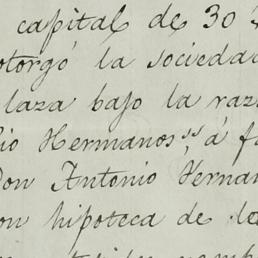 capital de 30
otorgó la sociedad
laza bajo la raz
io Hermanos", á f
Don Antonio Hernan
on hipoteca de la